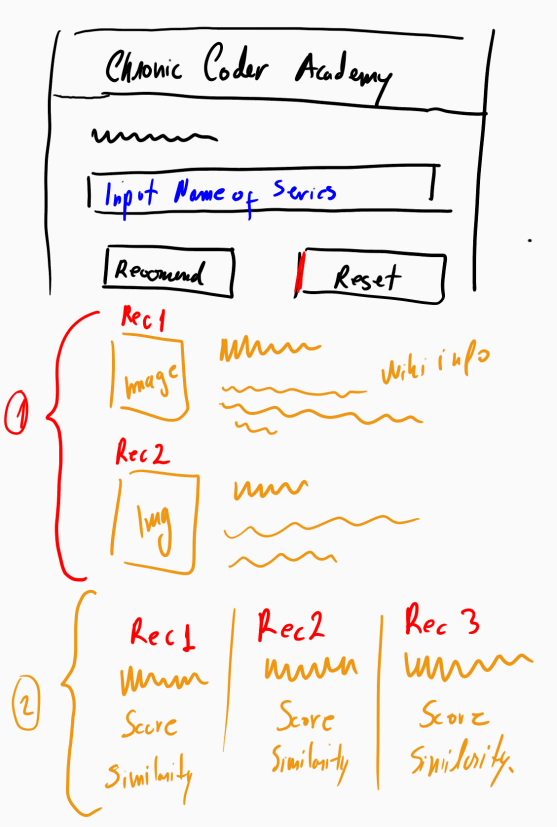 Chronic Coder Academy
Input Name of Series
Recommend Reset
1
Rec1
Image
Wiki info
Rec2
Img
2
Rec1 Rec2 Rec 3
Score Score Score
Similarity Similarity Similarity.